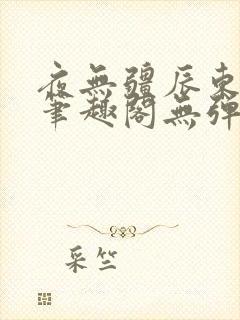 夜無疆辰東
筆趣閣無彈
采竺